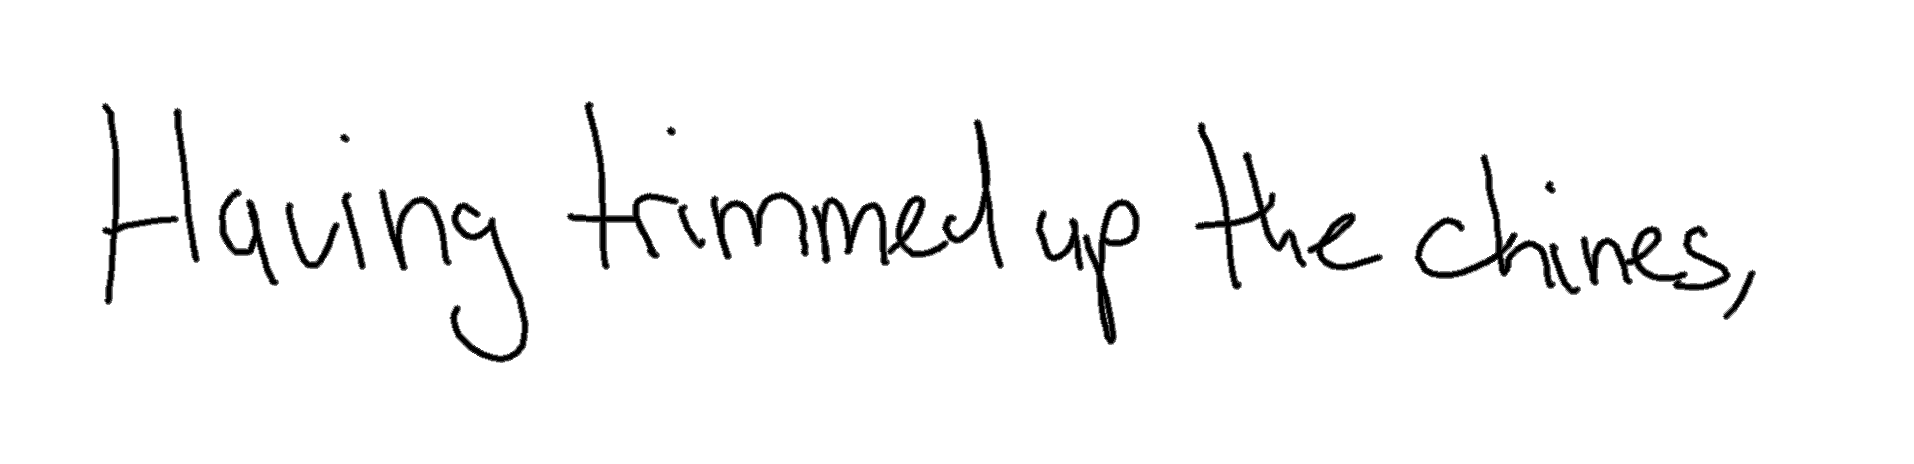 Having trimmed up the chines,